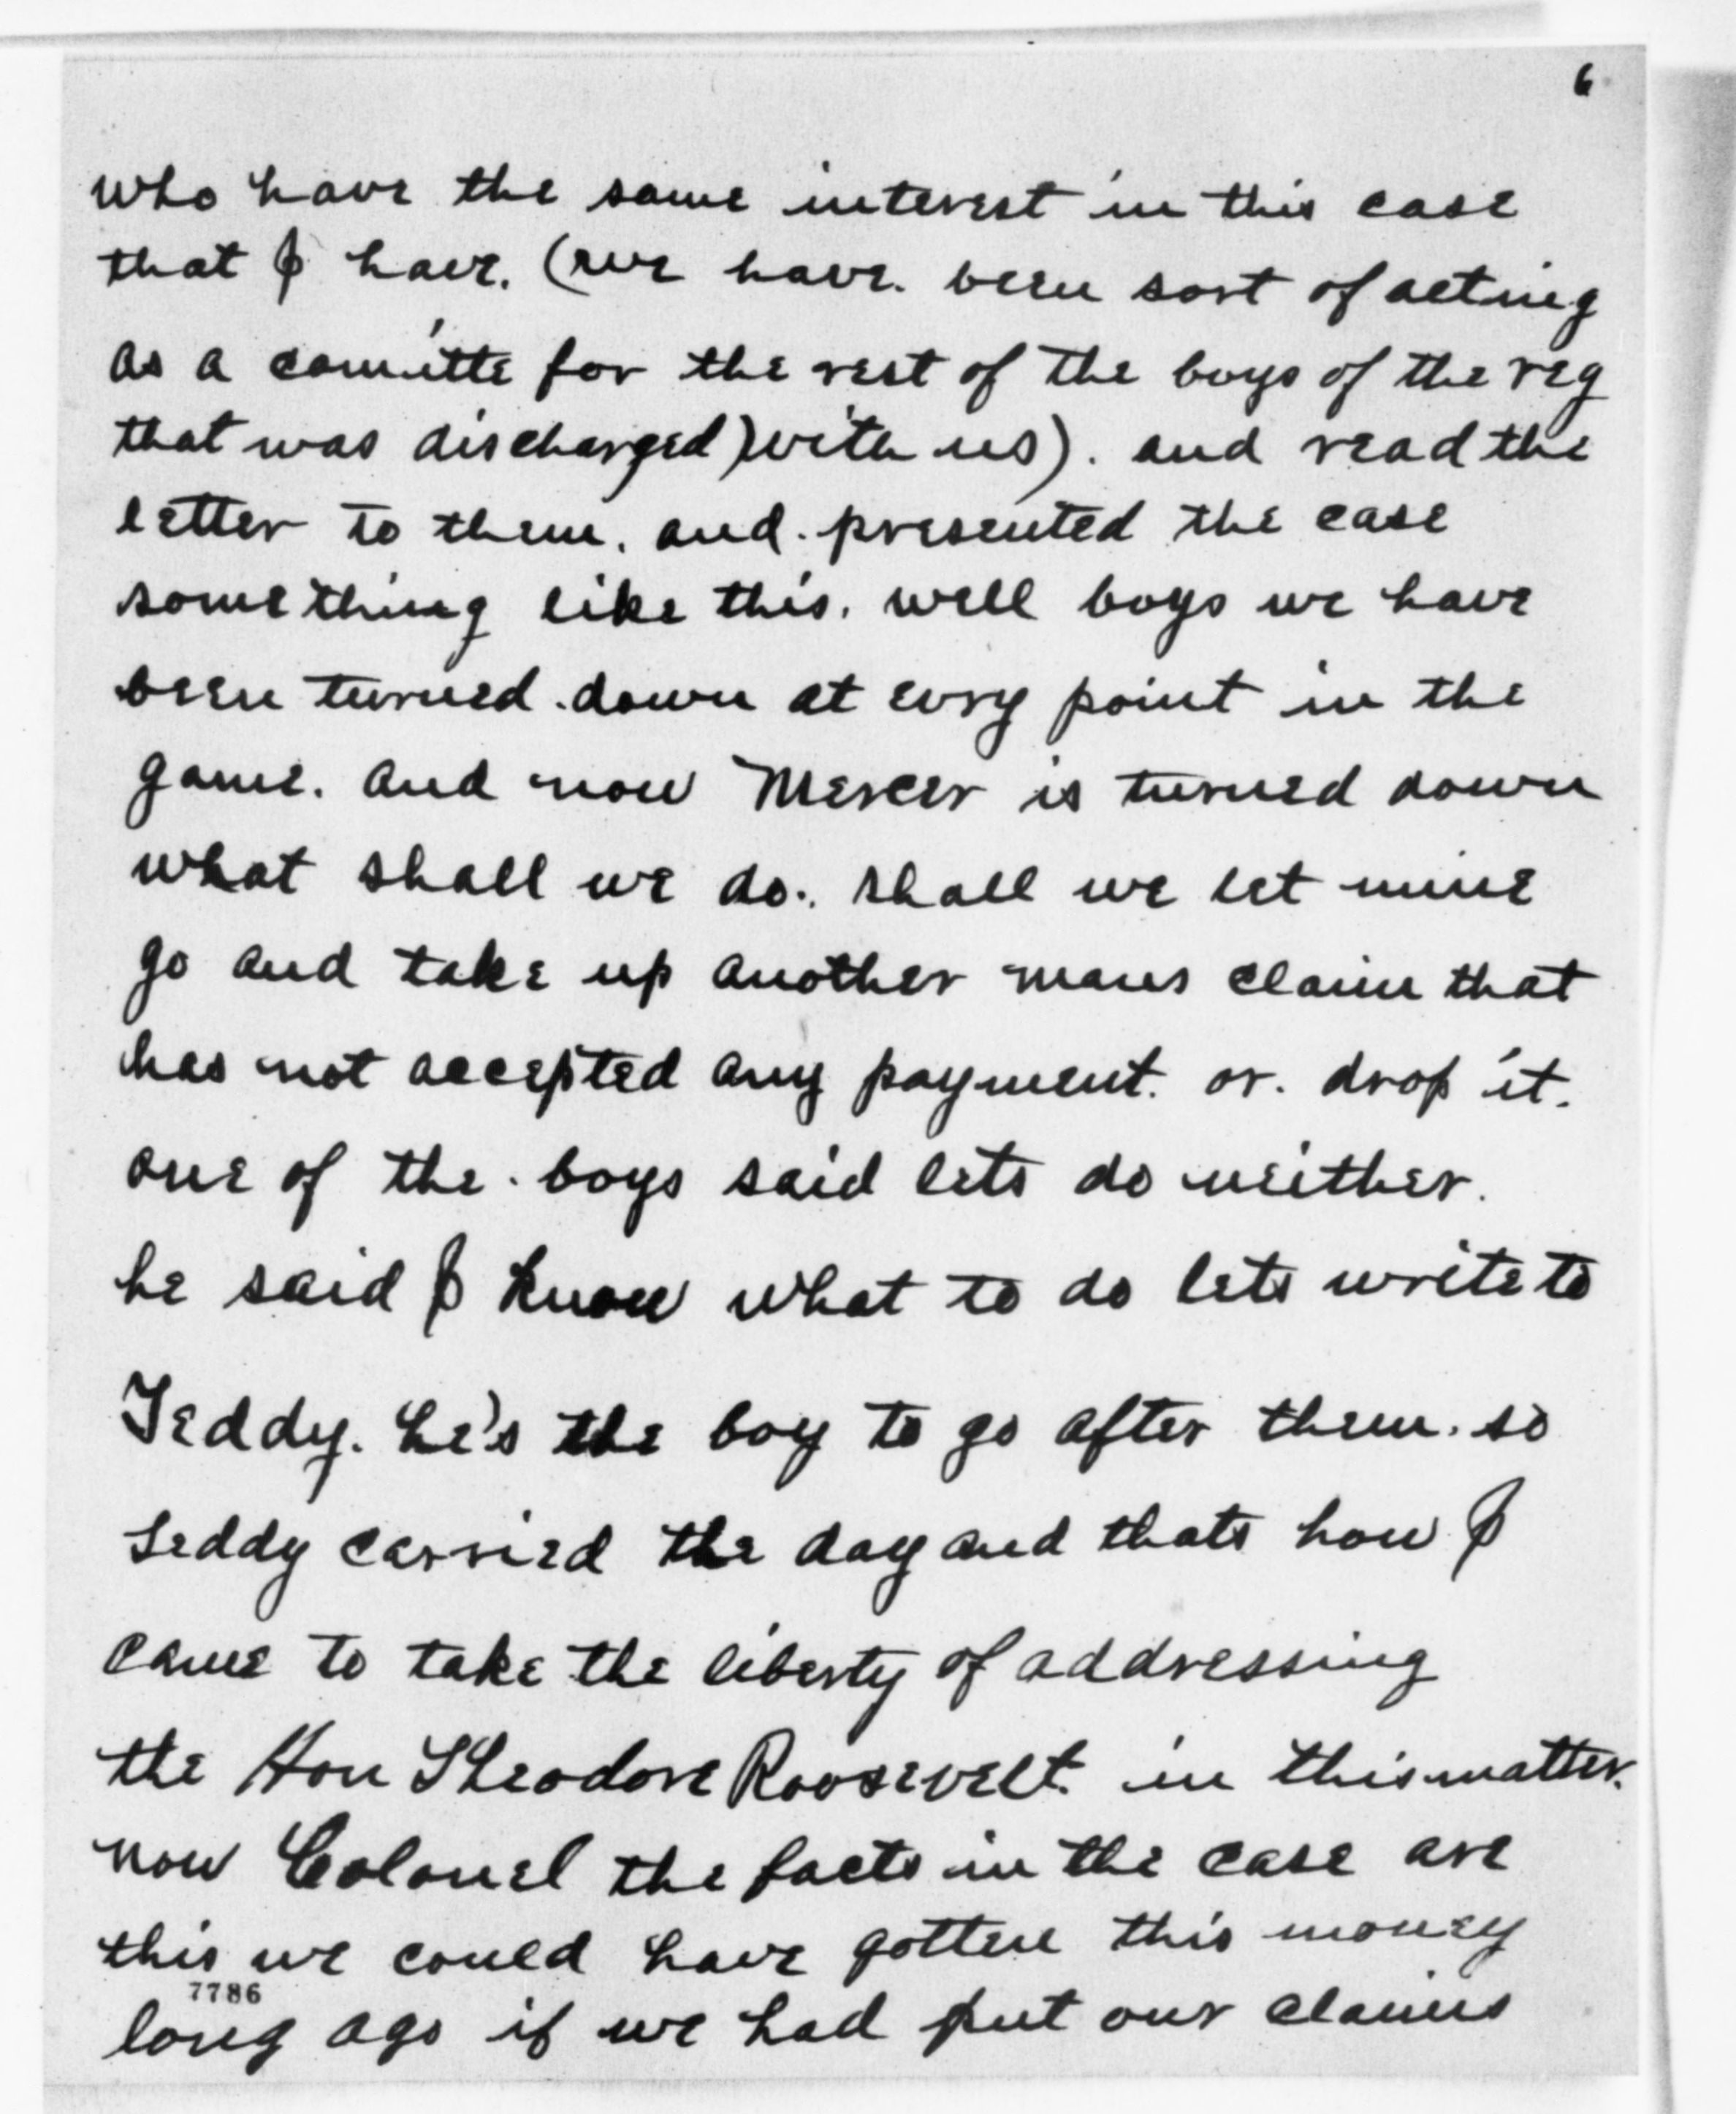 6
who have the same interest in this case
that I have. (we have. been sort of acting
as a comitte for the rest of the boys of the reg
that was discharged) with us). and read the
letter to them. and. presented the case
something like this. well boys we have
been turned. down at evry point in the
game. and now Mercer is turned down
what shall we do.. shall we let mine
go and take up another mans claim that
has not accepted any payment. or. drop it.
one of the. boys said lets do neither.
he said I know what to do lets write to
Teddy. he's the boy to go after them. so
teddy carried the day and thats how I
came to take the liberty of addressing
the Hon Theodore Roosevelt. in this matter.
now Colonel the facts in the case are
this we could have gotten this money
7786
long ago if we had put our claims